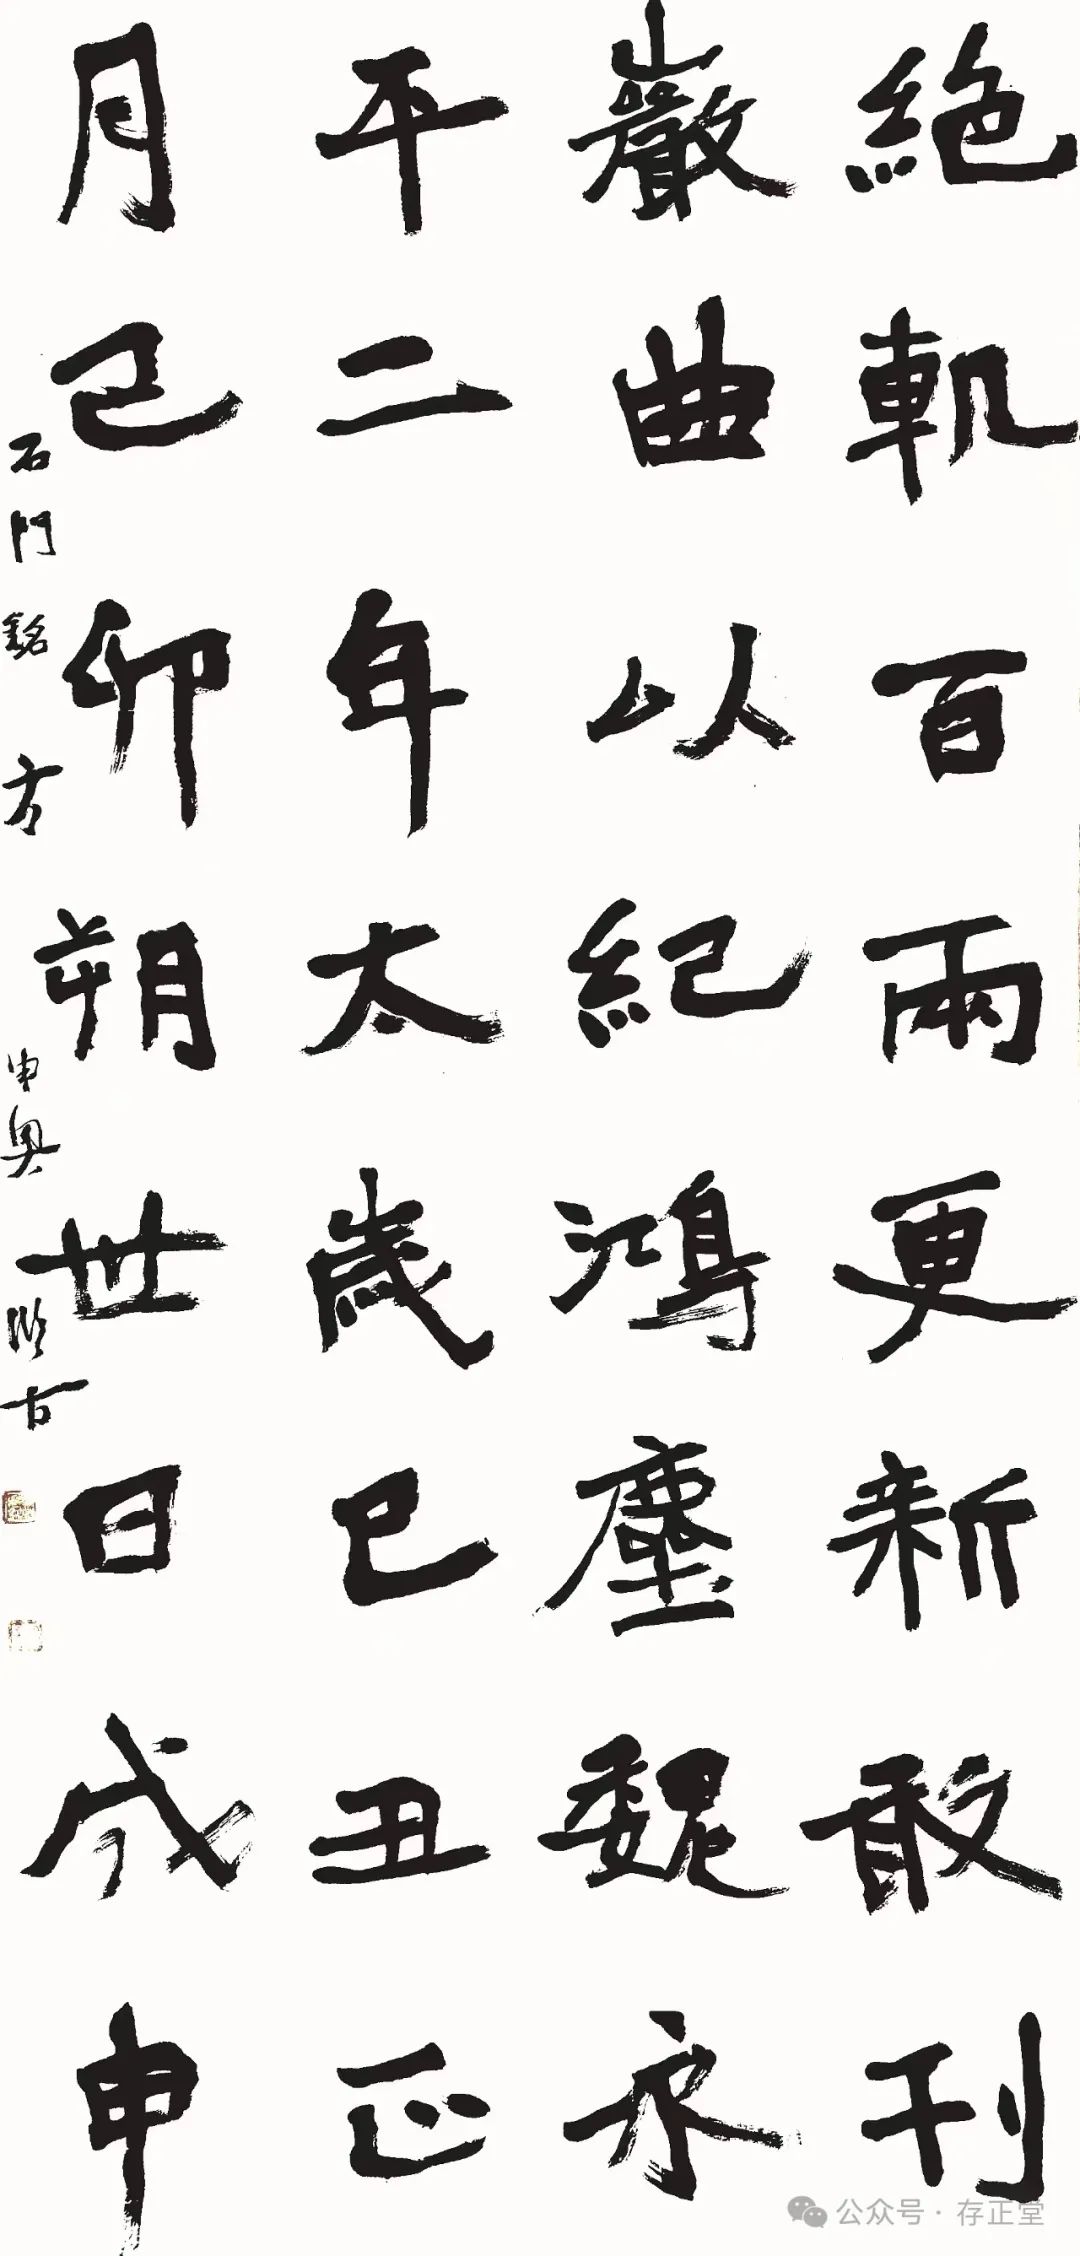 絶軌百兩更新敢刊
巖曲以紀鴻塵魏永
平二年太歲巳丑正
月己卯朔卅日戊申
石門銘 方
申奥 臨古
公众号·存正堂